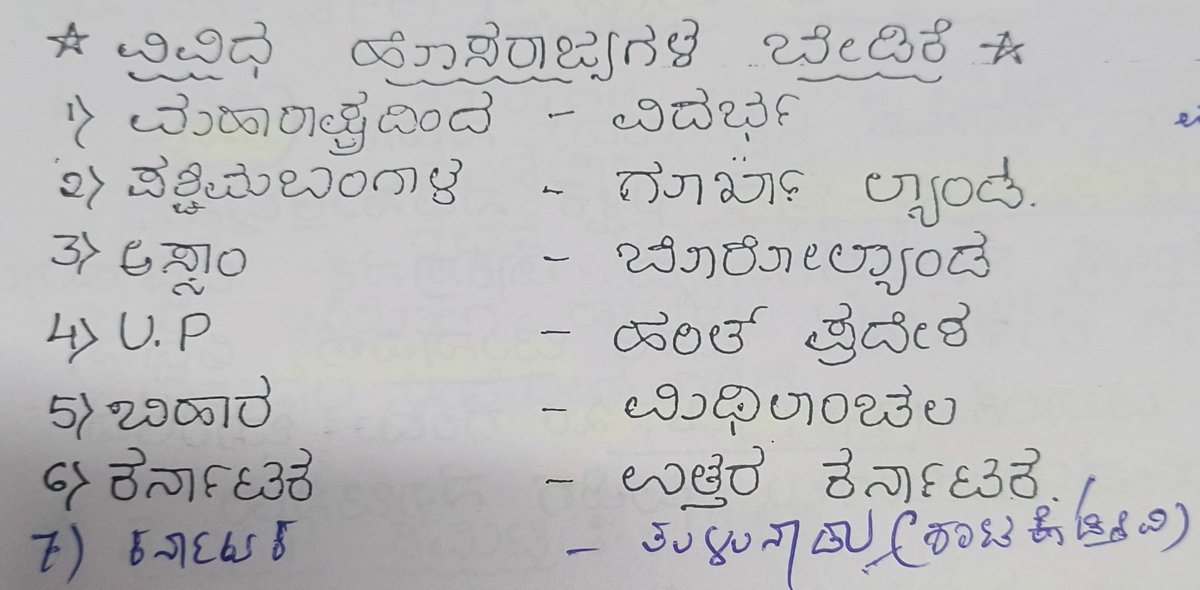 ☆ ವಿವಿಧ ಹೊಸರಾಜ್ಯಗಳ ಬೇಡಿಕೆ ☆
1) ಮಹಾರಾಷ್ಟ್ರದಿಂದ - ವಿದರ್ಭ
2) ಪಶ್ಚಿಮಬಂಗಾಳ - ಗೂರ್ಖಾ ಲ್ಯಾಂಡ್.
3) ಅಸ್ಸಾಂ - ಬೋರೋಲ್ಯಾಂಡ
4) U.P - ಹರಿತ್ ಪ್ರದೇಶ
5) ಬಿಹಾರ - ಮಿಥಿಲಾಂಚಲ
6) ಕರ್ನಾಟಕ - ಉತ್ತರ ಕರ್ನಾಟಕ.
7) ಕರ್ನಾಟಕ - ತುಳುನಾಡು